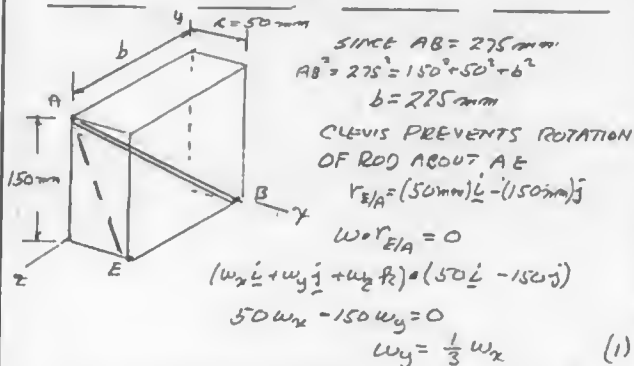 y
x = 50 mm
b
SINCE AB = 275 mm
AB² = 275² = 150² + 50² + b²
b = 225 mm
A
CLEVIS PREVENTS ROTATION
OF ROD ABOUT AE
150 mm
r_E/A = (50mm)i - (150mm)j
B
x
ω • r_E/A = 0
z
E
(ω_x i + ω_y j + ω_z k) • (50 i - 150 j)
50 ω_x - 150 ω_y = 0
ω_y = 1/3 ω_x (1)